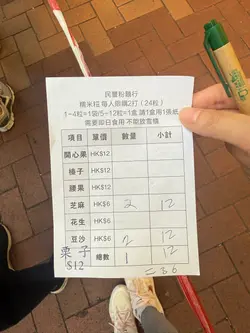 民豐粉麵行
糯米糍 每人限購2打（24粒）
1~4粒=1袋/5~12粒=1盒 請1盒用1張紙
需要即日食用 不能放雪櫃
項目 單價 數量 小計
開心果 HK$12
榛子 HK$12
腰果 HK$12
芝麻 HK$6 2 12
花生 HK$6
豆沙 HK$6 2 12
栗子 $12 總數 1 12
= 36